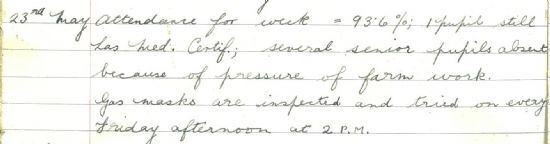 23rd May Attendance for week = 93.6%; 1 pupil still
has Med. Certif.; several senior pupils absent
because of pressure of farm work.
Gas masks are inspected and tried on every
Friday afternoon at 2 P.M.